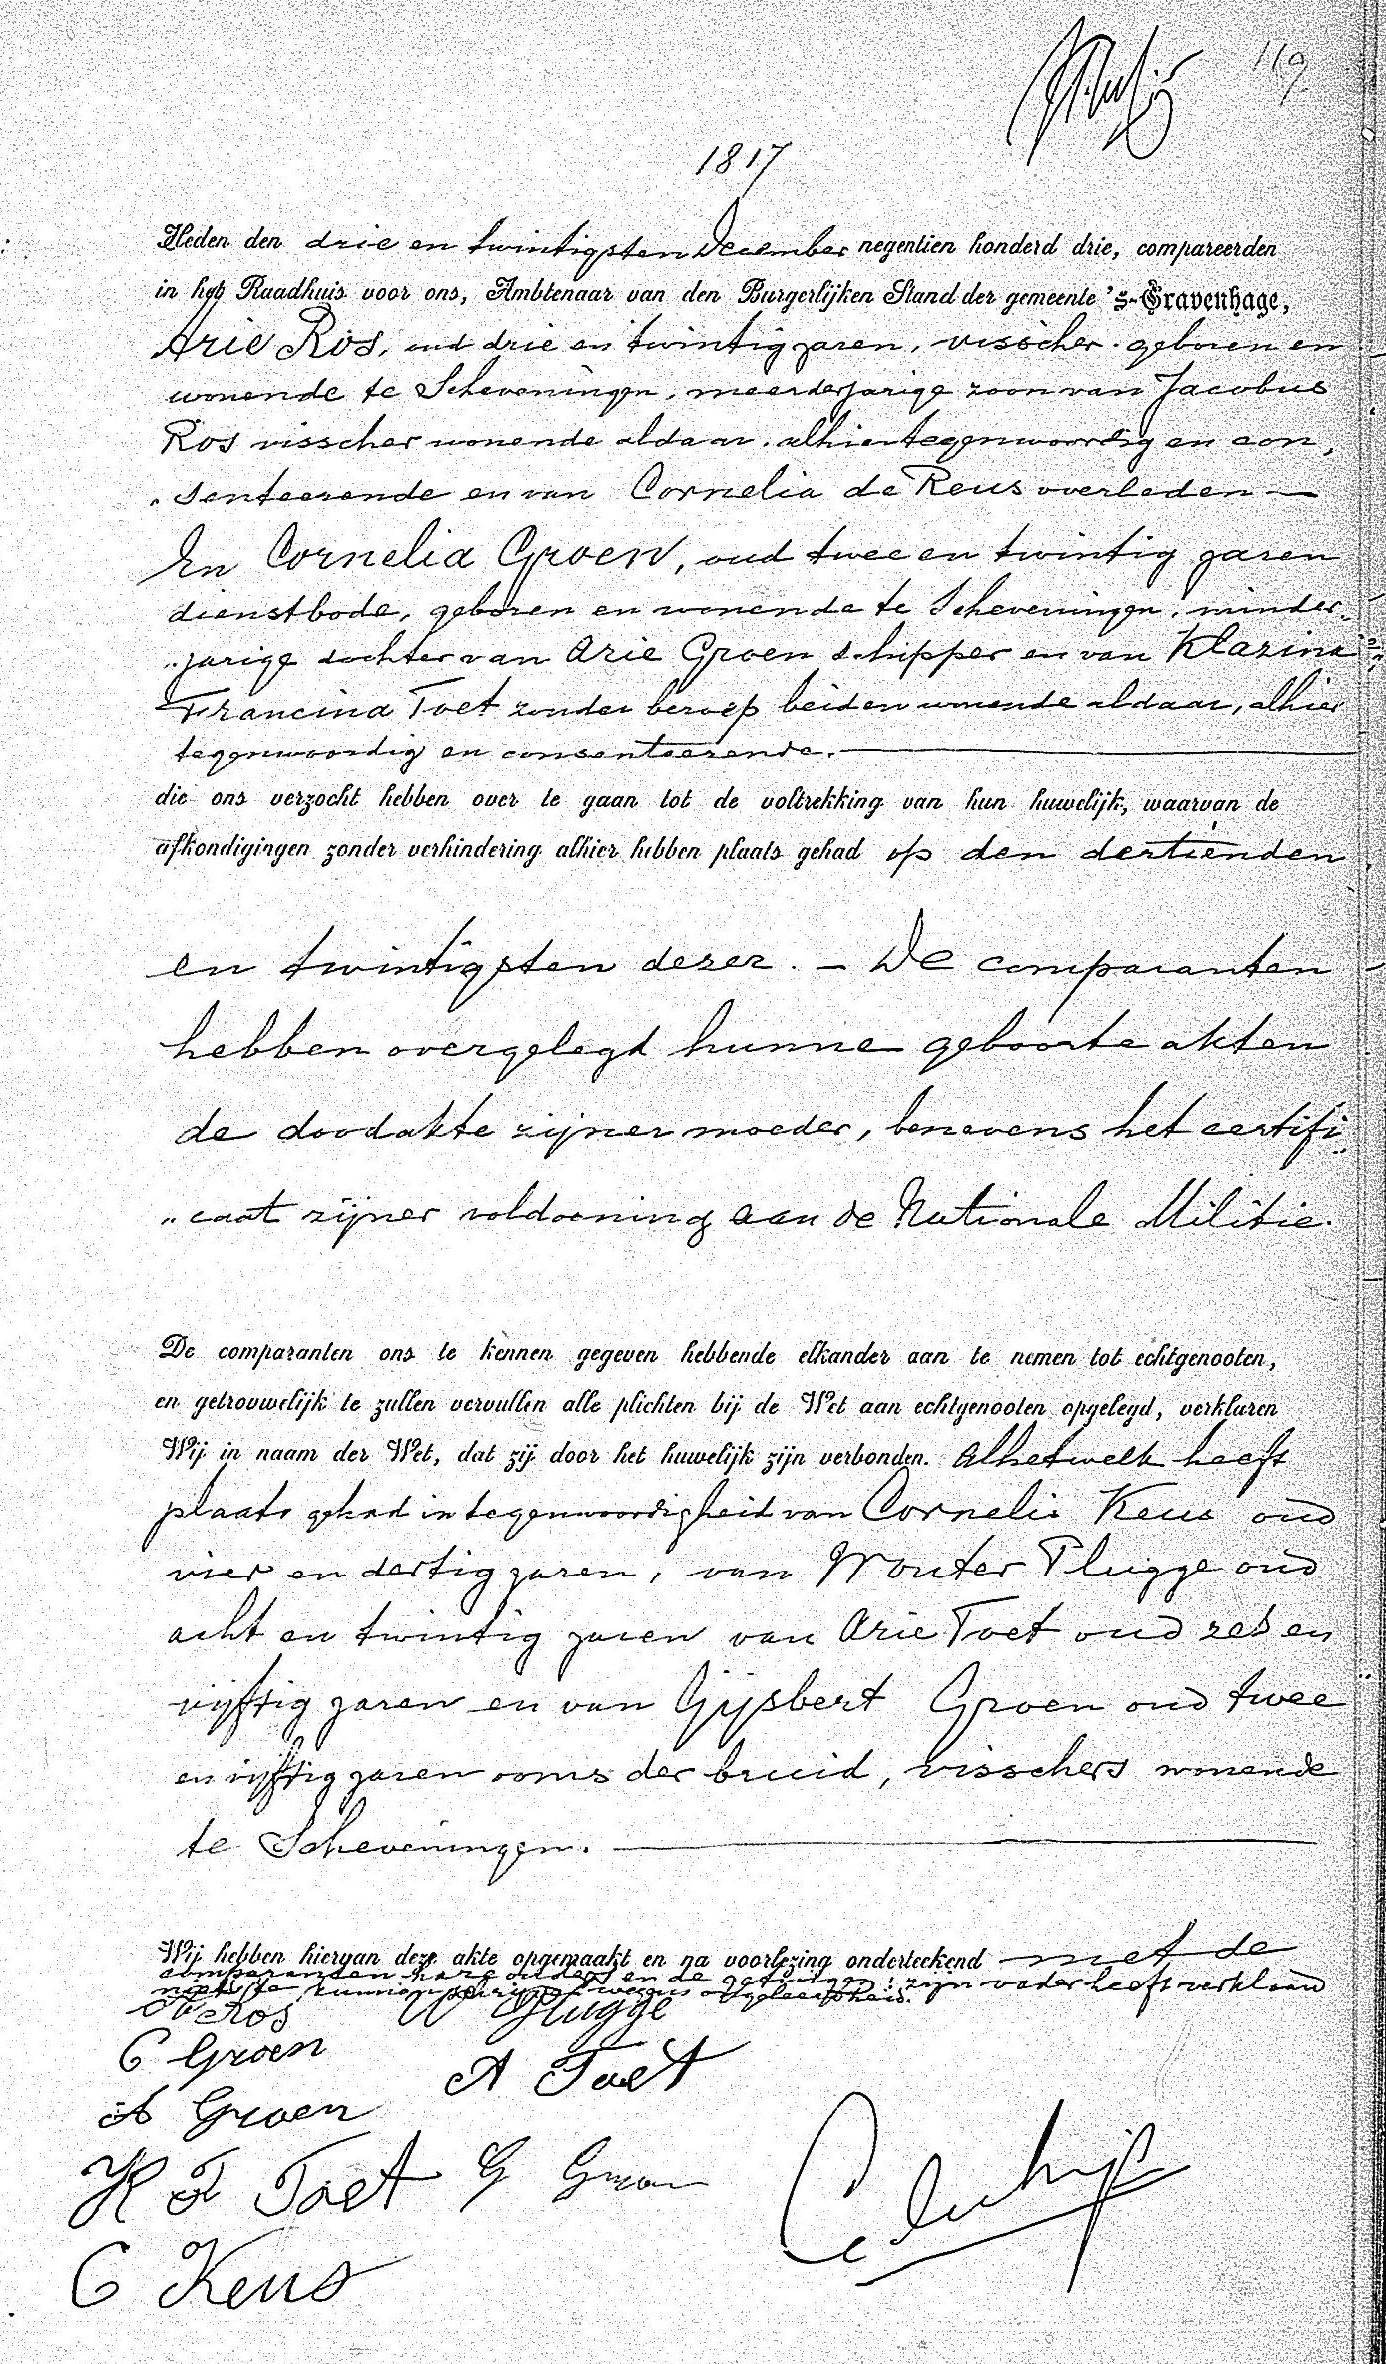 119
1817
Heden den drie en twintigsten December negentien honderd drie, compareerden
in het Raadhuis voor ons, Ambtenaar van den Burgerlijken Stand der gemeente 's-Gravenhage,
Arie Ros, oud drie en twintig jaren, visscher. geboren en
wonende te Scheveningen, meerderjarige zoon van Jacobus
Ros visscher wonende aldaar, alhier tegenwoordig en con„
„senteerende en van Cornelia de Reus overleden —
En Cornelia Groen, oud twee en twintig jaren
dienstbode, geboren en wonende te Scheveningen, minder„
„jarige dochter van Arie Groen schipper en van Klazina
Francina Toet zonder beroep beiden wonende aldaar, alhier
tegenwoordig en consenteerende. —
die ons verzocht hebben over te gaan tot de voltrekking van hun huwelijk, waarvan de
afkondigingen zonder verhindering alhier hebben plaats gehad op den dertienden
en twintigsten dezer. — De comparanten
hebben overgelegd hunne geboorte akten
de doodakte zijner moeder, benevens het certifi„
„caat zijner voldoening aan de Nationale Militie.
De comparanten ons te kennen gegeven hebbende elkander aan te nemen tot echtgenooten,
en getrouwelijk te zullen vervullen alle plichten bij de Wet aan echtgenooten opgelegd, verklaren
Wij in naam der Wet, dat zij door het huwelijk zijn verbonden. Alhetwelk heeft
plaats gehad in tegenwoordigheid van Cornelis Keus oud
vier en dertig jaren, van Wouter Plugge oud
acht en twintig jaren van Arie Toet oud zes en
vijftig jaren en van Gijsbert Groen oud twee
en vijftig jaren ooms der bruid, visschers wonende
te Scheveningen. —
Wij hebben hiervan deze akte opgemaakt en na voorlezing onderteekend — met de
comparanten hare ouders en de getuigen; zijn vader heeft verklaard
niet te kunnen schrijven wegens ongeleerdheid.
Ros W Plugge
C Groen
A Toet
A Groen
K F Toet G Groen
C Keus